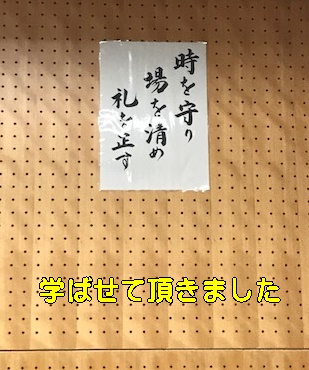 時を守り
場を清め
礼を正す
学ばせて頂きました